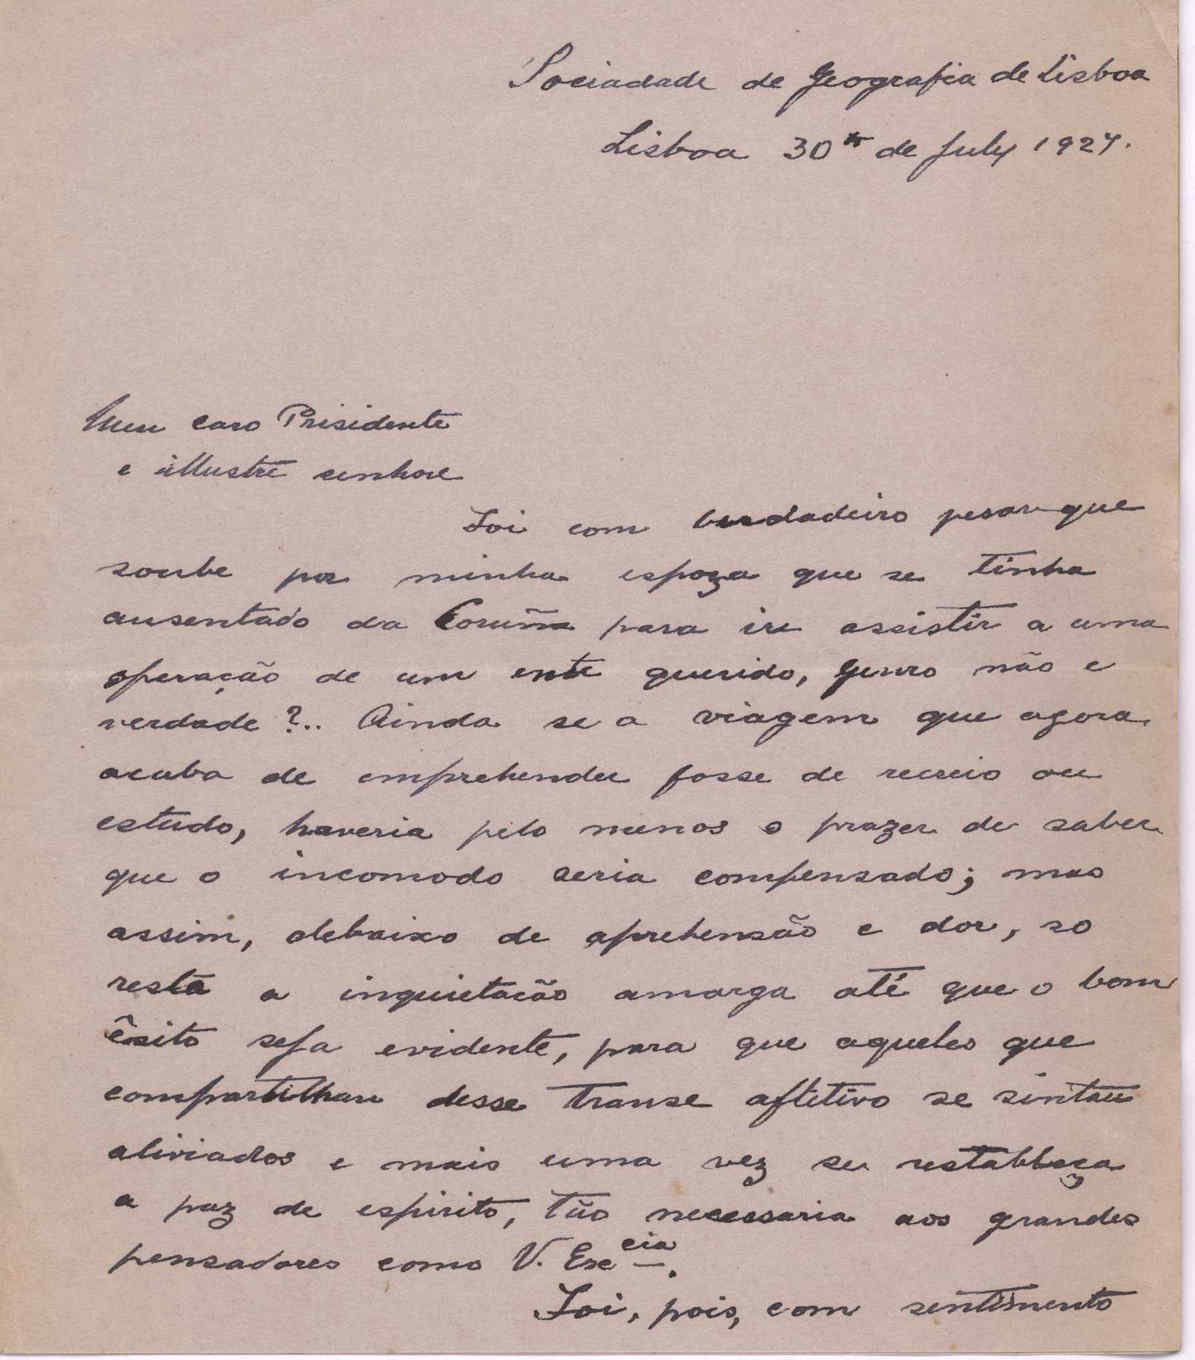 Sociadade de Geografia de Lisboa
Lisboa 30 de July 1927.
Meu caro Prisidente
e illustre senhore
Foi com verdadeiro pesar que
soube por minha espoza que se tinha
ausentado da Coruña para ire assistir a uma
operação de um ente querido, genro não e
verdade?.. Ainda se a viagem que agora
acaba de emprehender fosse de recreio ou
estudo, haveria pelo menos o prazer de saber
que o incomodo seria compensado; mas
assim, debaixo de aprehensão e dor, so
resta a inquietacão amarga até que o bom
êsito seja evidente, para que aqueles que
compartilhan desse transe aflitivo se sintan
aliviados e mais uma vez se restableça
a paz de espirito, tão necessaria aos grandes
pensadores como V. Excia.
Foi, pois, com sentimento